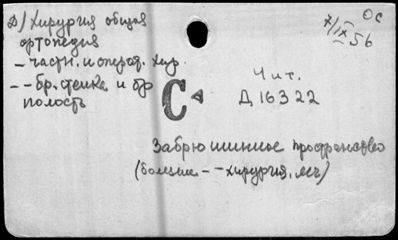 Д) Хирургия общая
ортопедия
– частн. и операт. хир.
– – бр. стенка и бр.
полость
ОС
7/IX 56
С
Чит.
Д 16322
Забрюшинное пространство
(болезни – – хирургия,